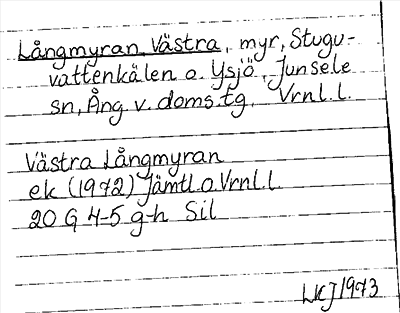 Långmyran, Västra, myr, Stugu-
vattenkälen o. Ysjö, Junsele
sn, Ång. v. doms.tg, Vrnl.l.
Västra Långmyran
ek (1972) Jämtl.o.Vrnl.l.
20 G 4-5 g-h Sil
LKJ 1973